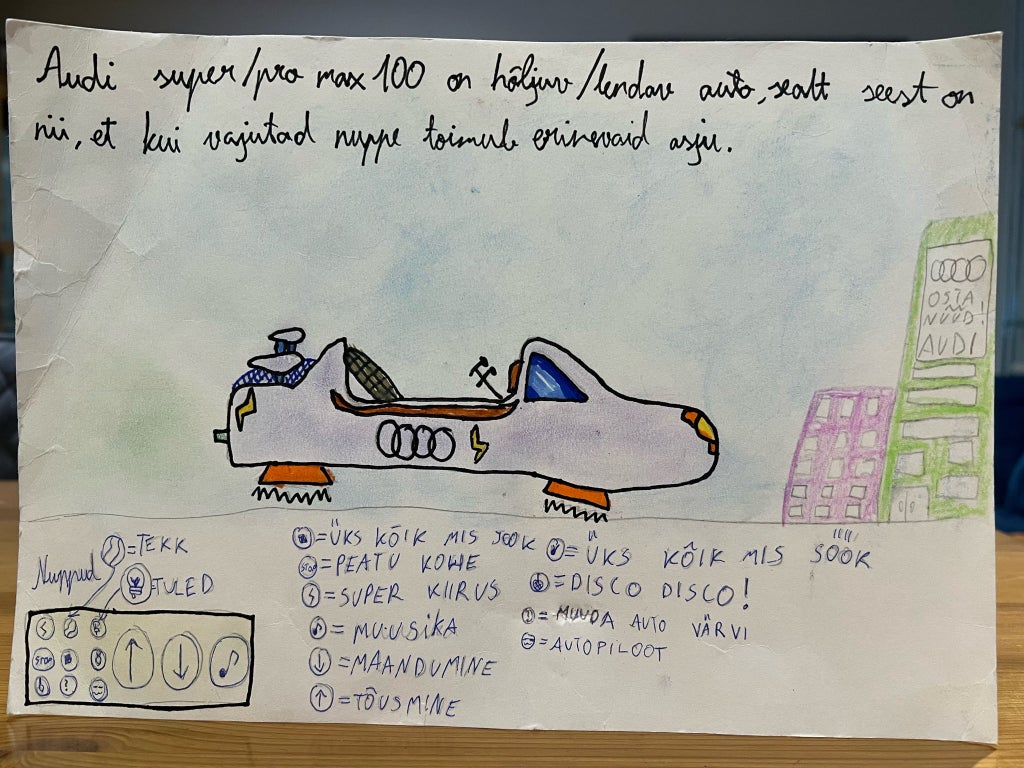 Audi super/pro max 100 on hõljuv/lendav auto, sealt seest on
nii, et kui vajutad nuppe toimub erinevaid asju.
OSTA
NÜÜD!
AUDI
Nuppud
=TEKK
=TULED
STOP
=ÜKS KÕIK MIS JOOK
STOP=PEATU KOHE
=SUPER KIIRUS
=MUUSIKA
=MAANDUMINE
=TÕUSMINE
=ÜKS KÕIK MIS SÖÖK
=DISCO DISCO!
=MUUDA AUTO VÄRVI
=AUTOPILOOT